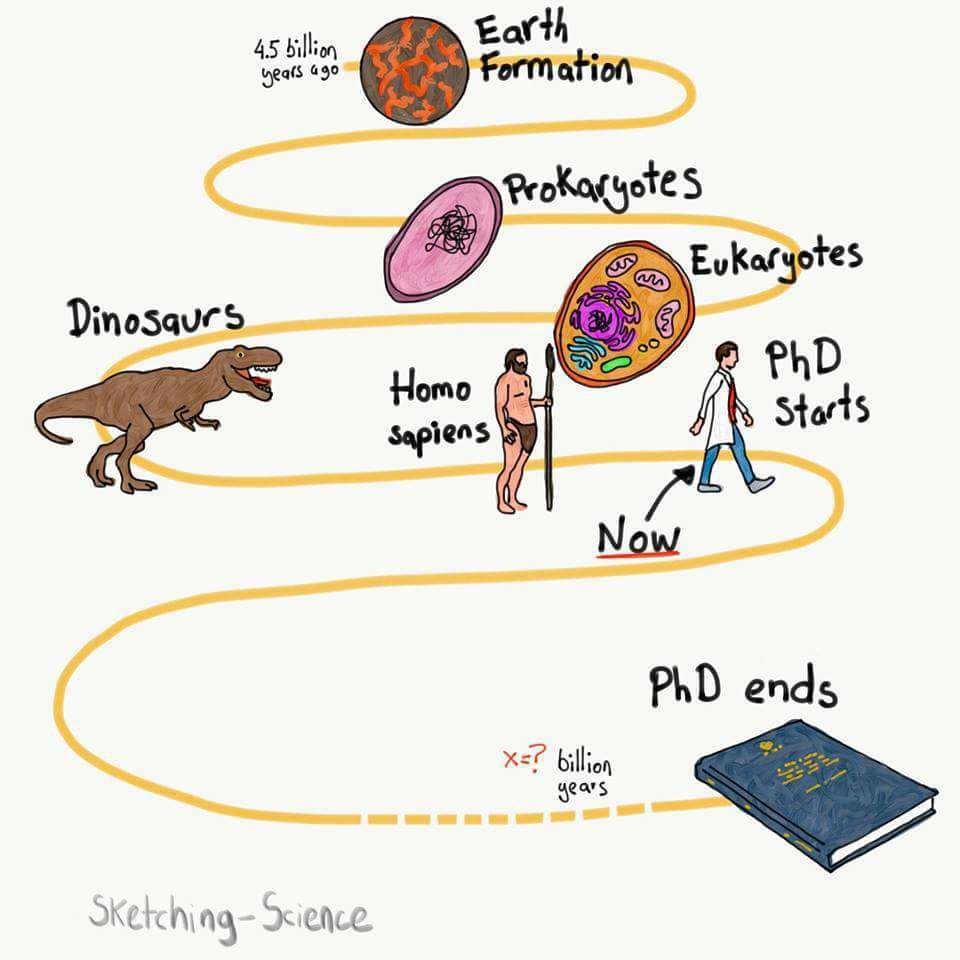 4.5 billion
years ago
Earth
Formation
Prokaryotes
Eukaryotes
Dinosaurs
Homo
sapiens
PhD
Starts
Now
PhD ends
x=? billion
years
Sketching-Science